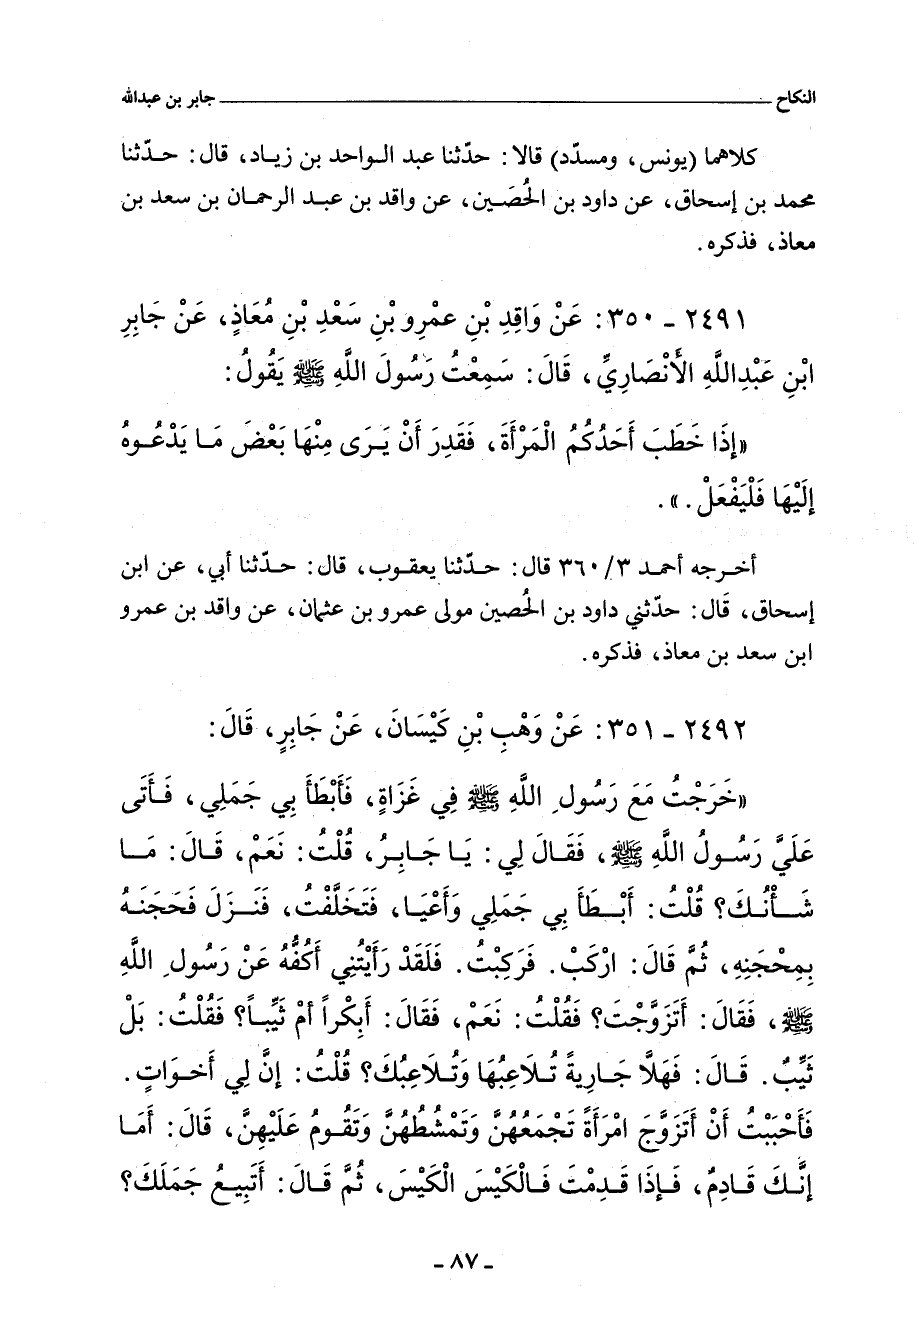 النكاح ــــــــــــــــــــــــــــــــ جابر بن عبدالله
كلاهما (يونس، ومسدّد) قالا: حدّثنا عبد الواحد بن زياد، قال: حدّثنا
محمد بن إسحاق، عن داود بن الحُصَين، عن واقد بن عبد الرحمان بن سعد بن
معاذ، فذكره.
٢٤٩١ - ٣٥٠: عَنْ وَاقِدِ بْنِ عمْرِو بْنِ سَعْدِ بْنِ مُعَاذٍ، عَنْ جَابِرِ
ابْنِ عَبْدِاللَّهِ الأَنْصَارِيِّ، قَالَ: سَمِعْتُ رَسُولَ اللَّهِ ﷺ يَقُولُ:
«إِذَا خَطَبَ أَحَدُكُمُ الْمَرْأَةَ، فَقَدِرَ أَنْ يَرَى مِنْهَا بَعْضَ مَا يَدْعُوهُ
إِلَيْهَا فَلْيَفْعَلْ.».
أخرجه أحمد ٣/٣٦٠ قال: حدّثنا يعقوب، قال: حدّثنا أبي، عن ابن
إسحاق، قَال: حدّثني داود بن الحُصين مولى عمرو بن عثمان، عن واقد بن عمرو
ابن سعد بن معاذ، فذكره.
٢٤٩٢ - ٣٥١: عَنْ وَهْبِ بْنِ كَيْسَانَ، عَنْ جَابِرٍ، قَالَ:
«خَرَجْتُ مَعَ رَسُولِ اللَّهِ ﷺ فِي غَزَاةٍ، فَأَبْطَأَ بِي جَمَلِي، فَأَتَى
عَلَيَّ رَسُولُ اللَّهِ ﷺ، فَقَالَ لِي: يَا جَابِرُ، قُلْتُ: نَعَمْ، قَالَ: مَا
شَأْنُكَ؟ قُلْتُ: أَبْطَأَ بِي جَمَلِي وَأَعْيَا، فَتَخَلَّفْتُ، فَنَزَلَ فَحَجَنَهُ
بِمِحْجَنِهِ، ثُمَّ قَالَ: ارْكَبْ. فَرَكِبْتُ. فَلَقَدْ رَأَيْتُنِي أَكُفُّهُ عَنْ رَسُولِ اللَّهِ
ﷺ، فَقَالَ: أَتَزَوَّجْتَ؟ فَقُلْتُ: نَعَمْ، فَقَالَ: أَبِكْراً أَمْ ثَيِّباً؟ فَقُلْتُ: بَلْ
ثَيِّبٌ. قَالَ: فَهَلَّا جَارِيةً تُلاَعِبُهَا وَتُلاَعِبُكَ؟ قُلْتُ: إِنَّ لِي أَخَوَاتٍ.
فَأَحْبَبْتُ أَنْ أَتَزَوَّجَ امْرَأَةً تَجْمَعُهُنَّ وَتَمْشُطُهُنَّ وَتَقُومُ عَلَيْهِنَّ، قَالَ: أَمَا
إِنَّكَ قَادِمٌ، فَإِذَا قَدِمْتَ فَالْكَيْسَ الْكَيْسَ، ثُمَّ قَالَ: أَتَبِيعُ جَمَلَكَ؟
- ٨٧ -